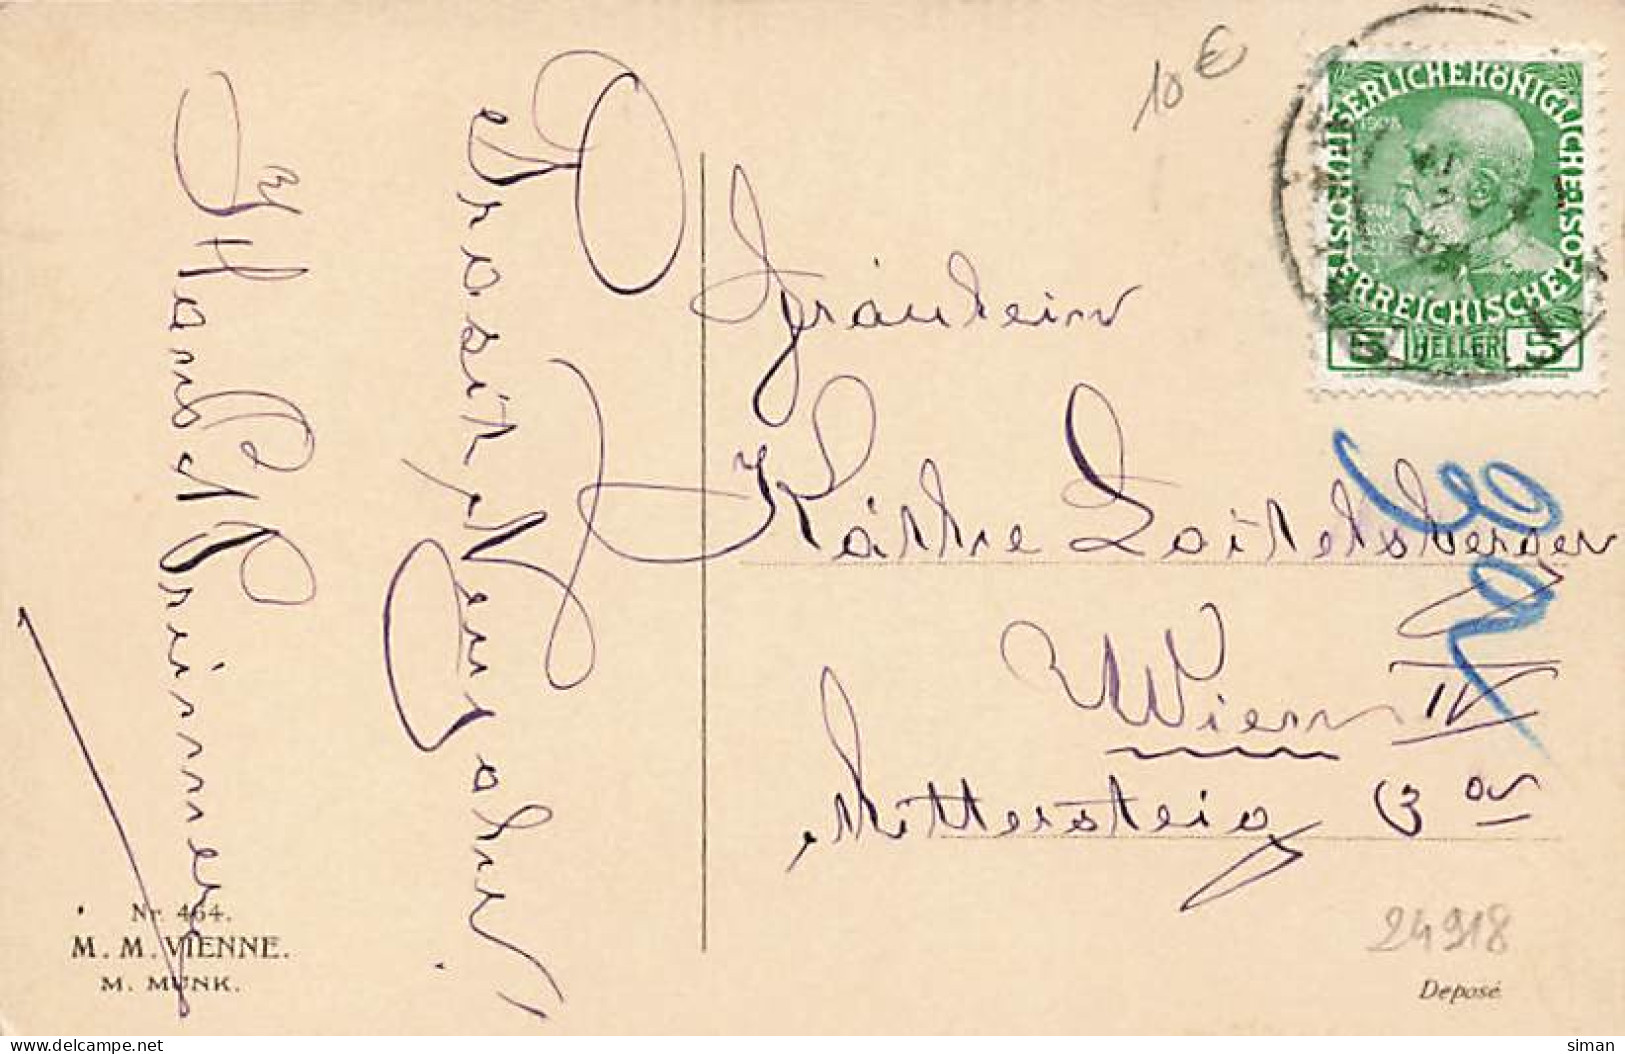 Prosit Neujahr!
Hans
10 €
KAISERLICHEKÖNIGLICHE
ÖSTERREICHISCHE
1908
5 HELLER 5
Fräulein
Käthe Loitelsberger
Wien IV
Mittersteig
24918
Nr. 464.
M. M. VIENNE.
M. MUNK.
Deposé
delcampe.net
siman